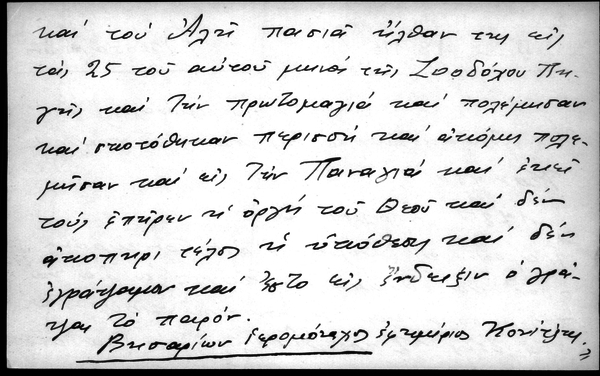 καὶ τοῦ Ἀλῆ πασιᾶ ἦλθαν της εἰς
τὰς 25 τοῦ αὐτοῦ μηνὸς τῆς Ζωοδόχου Πη-
γῆς καὶ τὴν πρωτομαγιὰ καὶ πολέμησαν
καὶ σκοτόθηκαν περισσὴ καὶ ἀκόμη πολε-
μῆσαν καὶ εἰς τὴν Παναγιὰ καὶ ἐκεῖ
τοὺς ἐπῆρεν ἡ ὀργὴ τοῦ Θεοῦ καὶ δὲν
τέλος ἡ ὑπόθεσις καὶ δὲν
ἐγράψαμεν καὶ ἔστο εἰς ἔνδειξιν ὁ γρά-
ψας τὸ παρόν.
Βησαρίων ἱερομόναχος ἐφημέριος Κονίτζης.